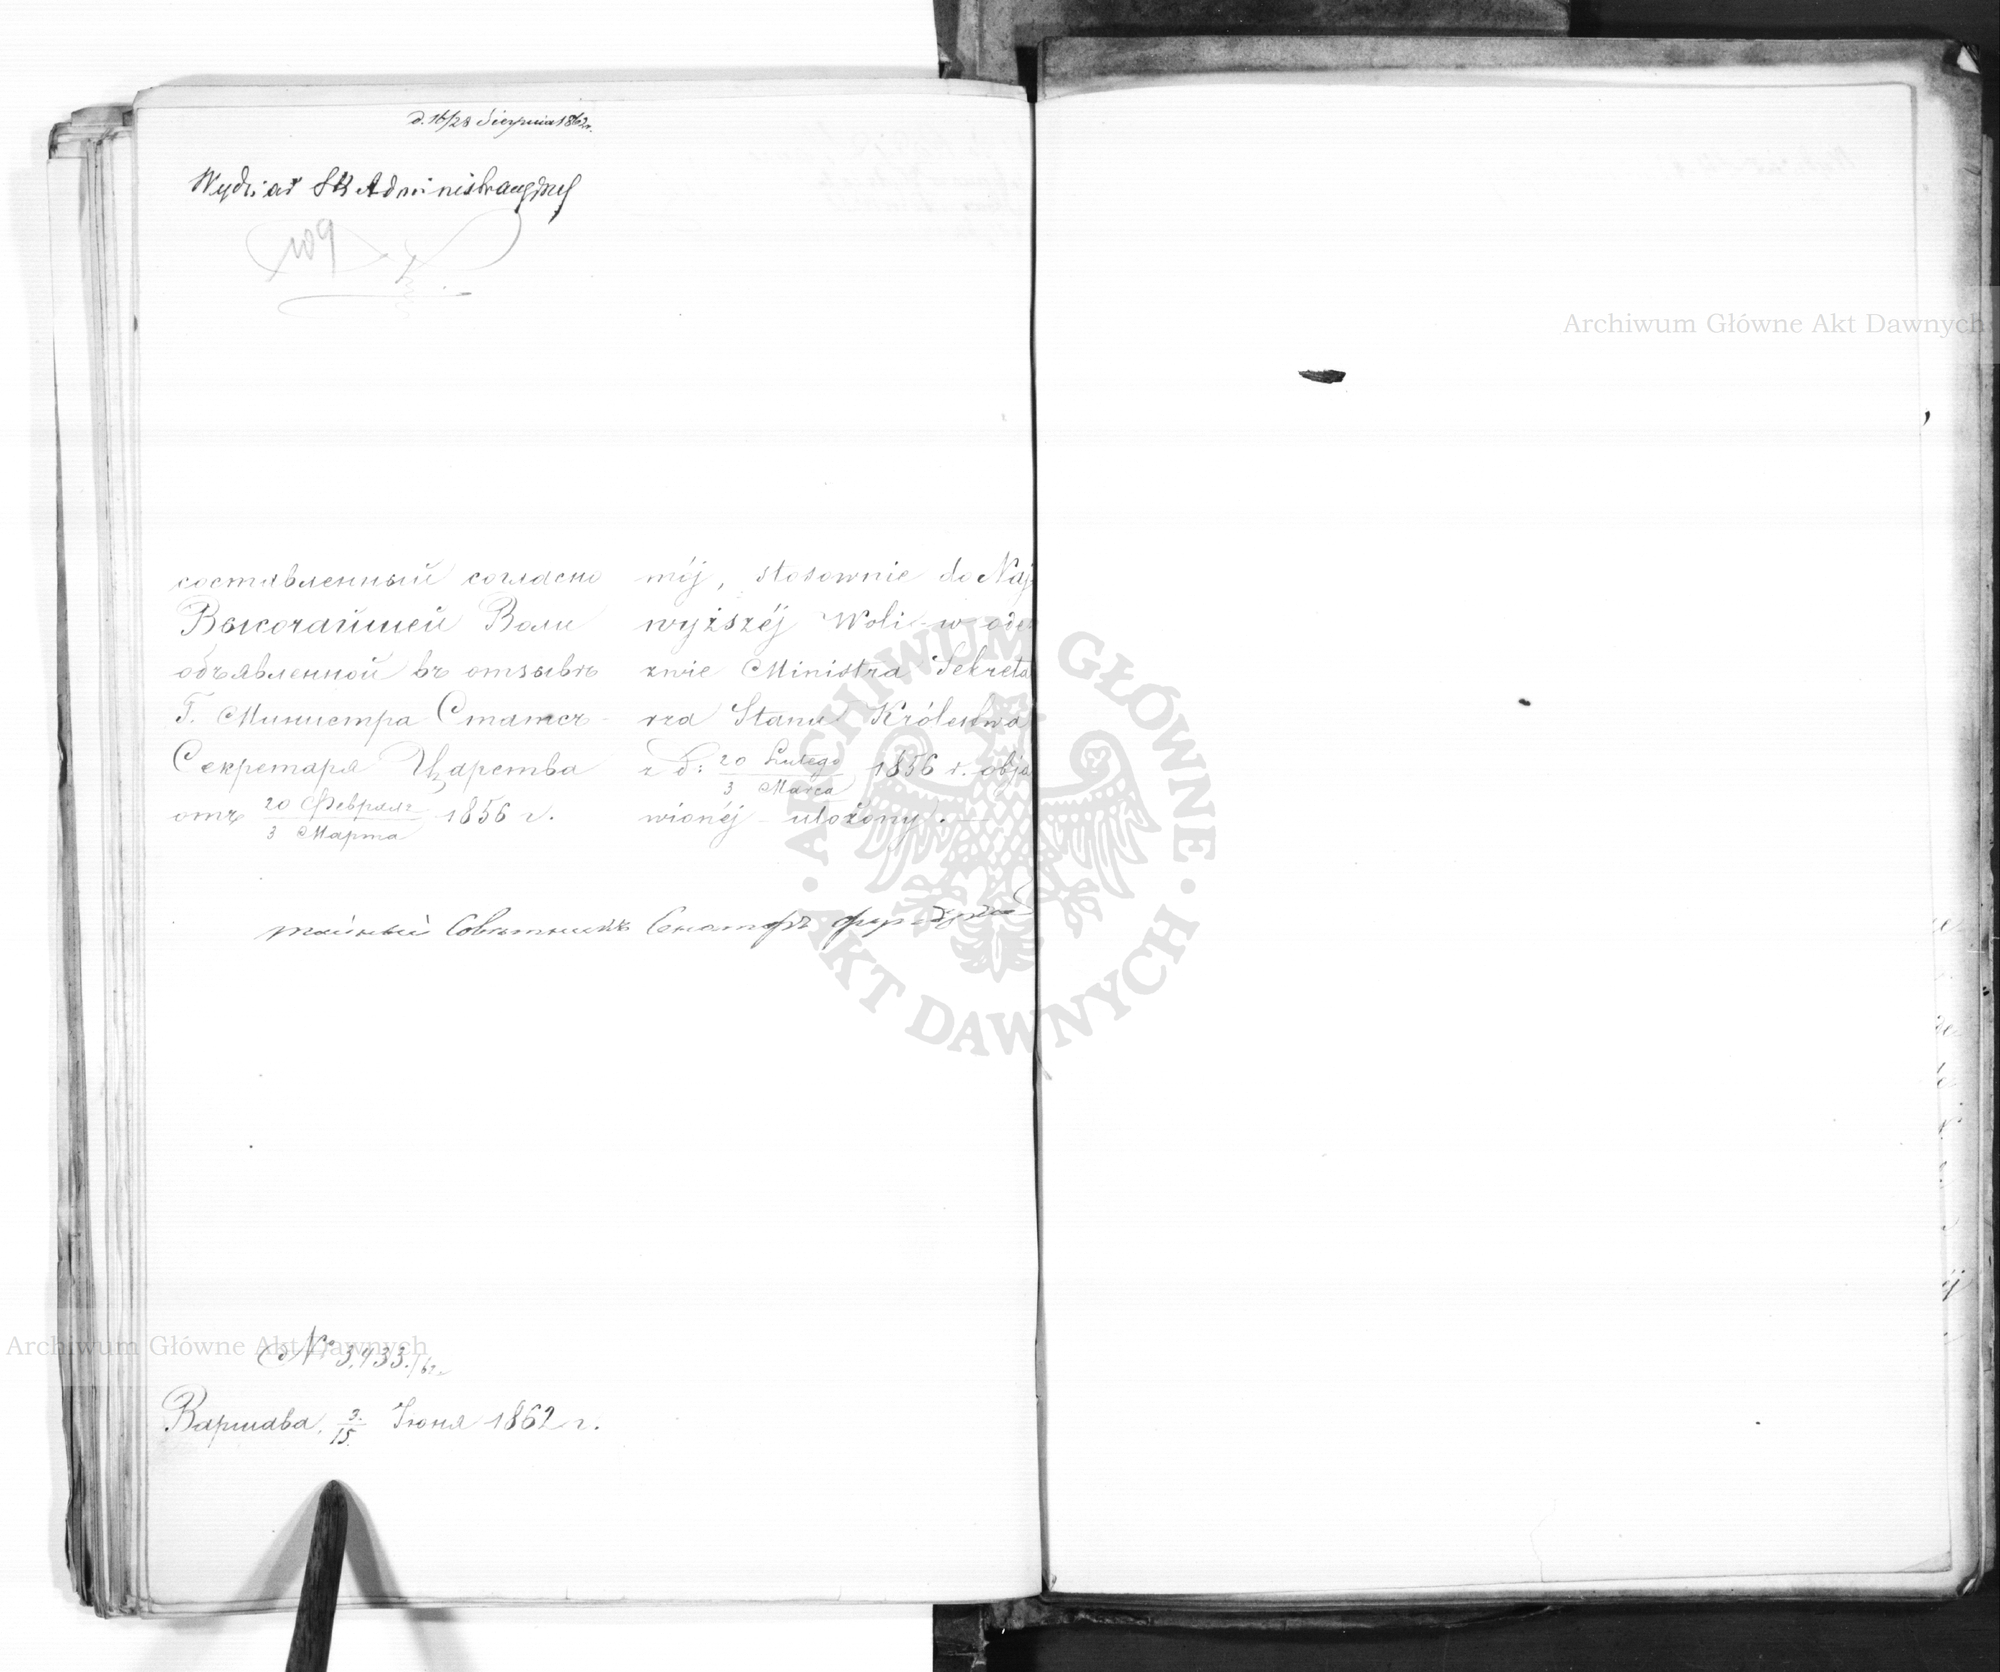 d. 16/28 Sierpnia 1862 r.
Wydział Administracyjny
109
составленный согласно
Высочайшей Воли
объявленной въ отзывѣ
Г. Министра Статсъ-
Секретаря Царства
отъ 20 Февраля / 3 Марта 1856 г.
mój, stosownie do Naj
wyższéj Woli w ode
zwie Ministra Sekreta
rza Stanu Królestwa
z d: 20 Lutego / 3 Marca 1856 r. obja
wionéj ułożony. —
Тайный Совѣтникъ Сенаторъ
№ 3,433./62
Варшава, 3/15 Іюня 1862 г.
Archiwum Główne Akt Dawnych
Archiwum Główne Akt Dawnych
ARCHIWUM GŁÓWNE AKT DAWNYCH